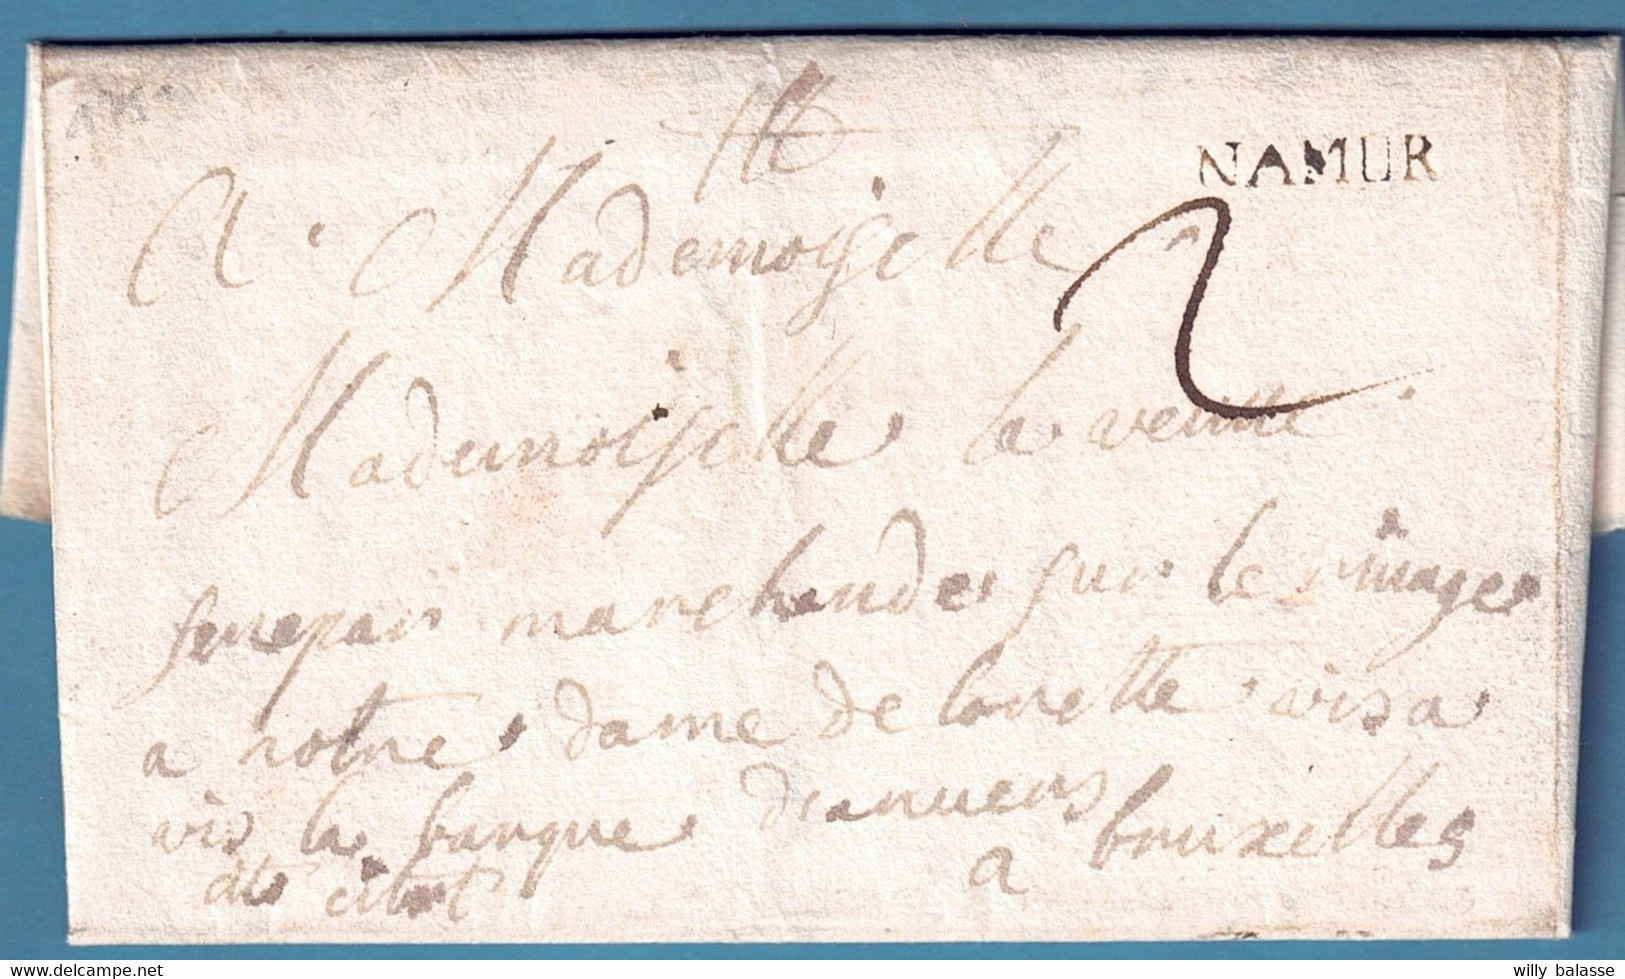 NAMUR
A Mademoiselle
2
Mademoiselle la veuve
marchande sur le rivage
a notre dame de lorette vis a
vis la barque danvers
a bruxelles
willy balasse